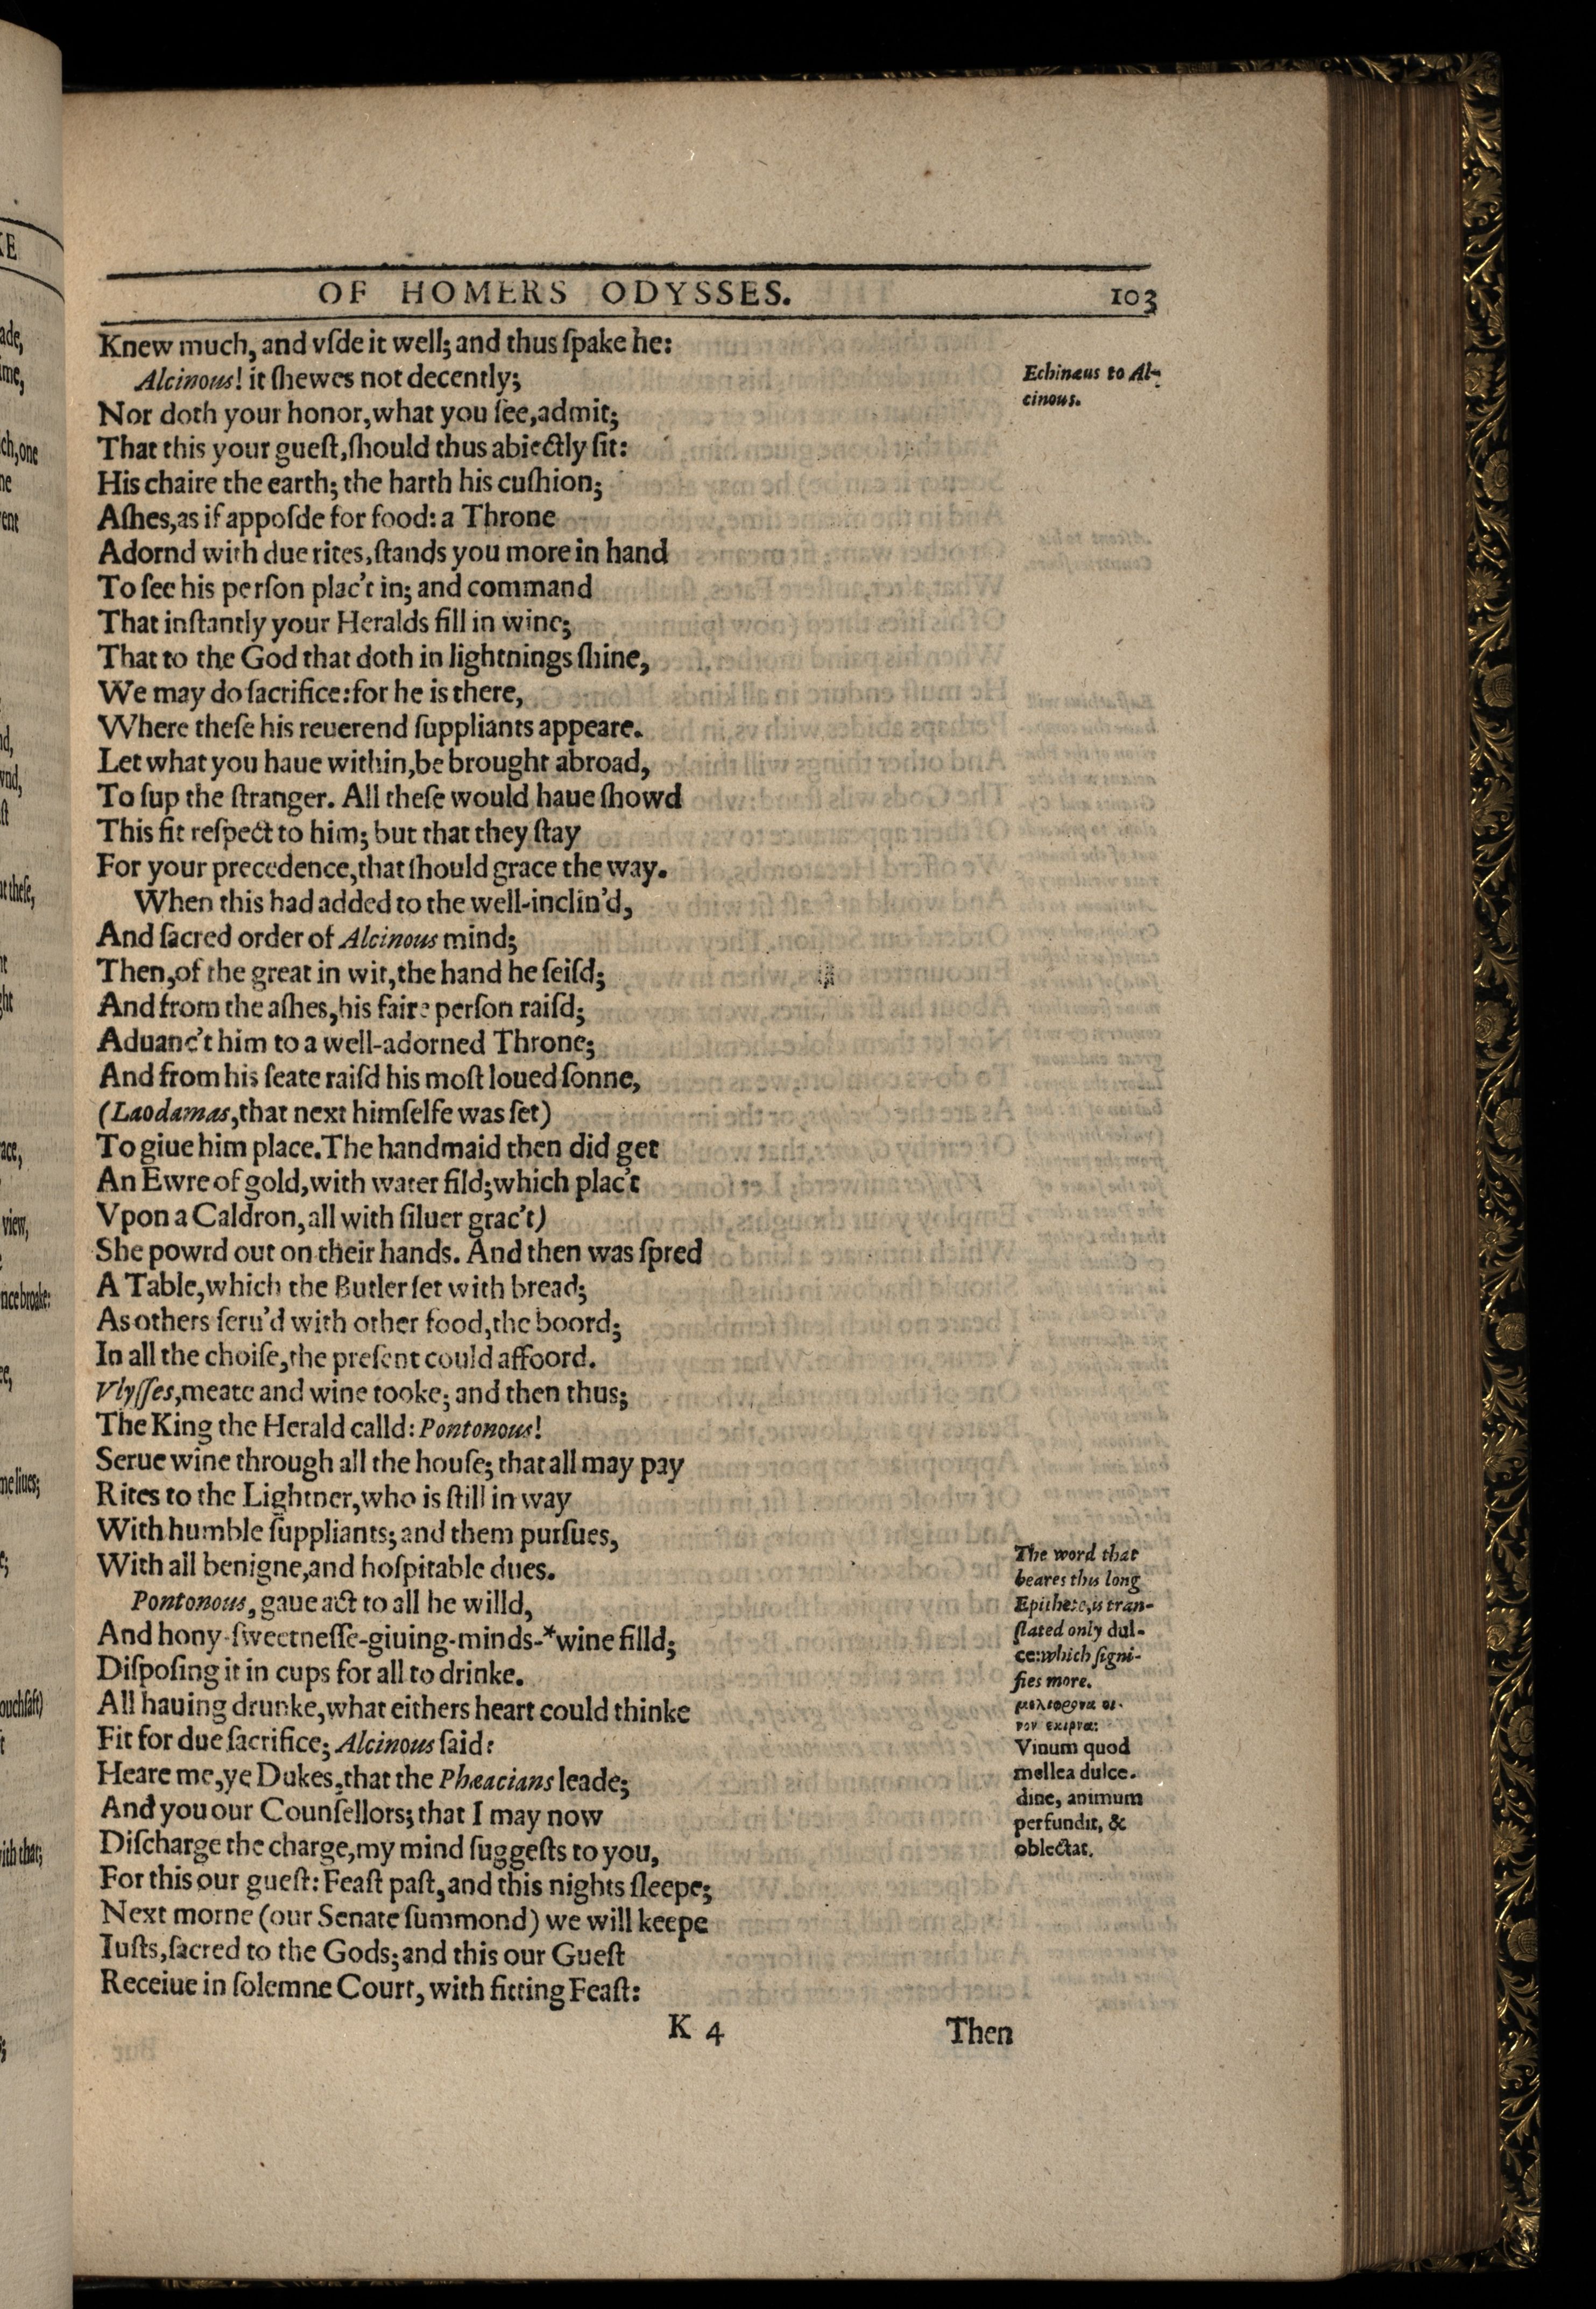 OF HOMERS ODYSSES. 103
Knew much, and vſde it well; and thus ſpake he:
Alcinous! it ſhewes not decently;
Nor doth your honor, what you ſee, admit;
That this your gueſt, ſhould thus abiectly ſit:
His chaire the earth; the harth his cuſhion;
Aſhes, as if appoſde for food: a Throne
Adornd with due rites, ſtands you more in hand
To ſee his perſon plac't in; and command
That inſtantly your Heralds fill in wine;
That to the God that doth in lightnings ſhine,
We may do ſacrifice: for he is there,
Where theſe his reuerend ſuppliants appeare.
Let what you haue within, be brought abroad,
To ſup the ſtranger. All theſe would haue ſhowd
This fit reſpect to him; but that they ſtay
For your precedence, that ſhould grace the way.
When this had added to the well-inclin'd,
And ſacred order of Alcinous mind;
Then, of the great in wit, the hand he ſeiſd;
And from the aſhes, his faire perſon raiſd;
Aduanc't him to a well-adorned Throne;
And from his ſeate raiſd his moſt loued ſonne,
(Laodamas, that next himſelfe was ſet)
To giue him place. The handmaid then did get
An Ewre of gold, with water fild; which plac't
Vpon a Caldron, all with ſiluer grac't)
She powrd out on their hands. And then was ſpred
A Table, which the Butler ſet with bread;
As others ſeru'd with other food, the boord;
In all the choiſe, the preſent could affoord.
Vlyſſes, meate and wine tooke; and then thus;
The King the Herald calld: Pontonous!
Serue wine through all the houſe; that all may pay
Rites to the Lightner, who is ſtill in way
With humble ſuppliants; and them purſues,
With all benigne, and hoſpitable dues.
Pontonous, gaue act to all he willd,
And hony-ſweetneſſe-giuing-minds-*wine filld;
Diſpoſing it in cups for all to drinke.
All hauing drunke, what eithers heart could thinke
Fit for due ſacrifice; Alcinous ſaid:
Heare me, ye Dukes, that the Phæacians leade;
And you our Counſellors; that I may now
Diſcharge the charge, my mind ſuggeſts to you,
For this our gueſt: Feaſt paſt, and this nights ſleepe;
Next morne (our Senate ſummond) we will keepe
Iuſts, ſacred to the Gods; and this our Gueſt
Receiue in ſolemne Court, with fitting Feaſt:
K 4 Then
Echinæus to Al-
cinous.
The word that
beares this long
Epithete, is tran-
ſlated only dul-
ce: which ſigni-
fies more.
μελιφρονα οι-
νον εκιρνα:
Vinum quod
mellea dulce-
dine, animum
perfundit, &
oblectat.
ade,
ch, one
view,
nce broake:
me liues;
ouchſaft)
ith that;